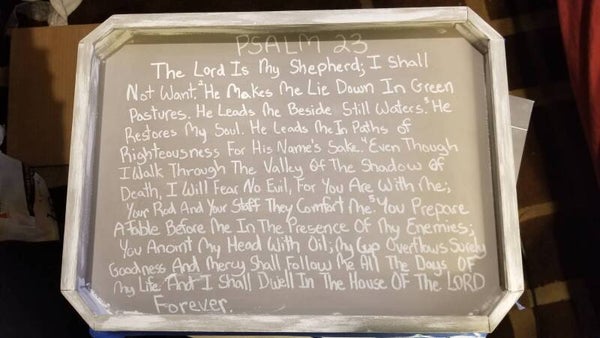 PSALM 23
The Lord Is My Shepherd; I Shall
Not Want. ²He Makes Me Lie Down In Green
Pastures. He Leads Me Beside Still Waters. ³He
Restores My Soul. He Leads Me In Paths of
Righteousness For His Name's Sake. ⁴Even Though
I Walk Through The Valley Of The Shadow Of
Death, I Will Fear No Evil, For You Are With Me;
Your Rod And Your Staff They Comfort Me. ⁵You Prepare
A Table Before Me In The Presence Of My Enemies;
You Anoint My Head With Oil; My Cup Overflows Surely
Goodness And Mercy Shall Follow Me All The Days Of
My Life. And I Shall Dwell In The House Of The LORD
Forever.